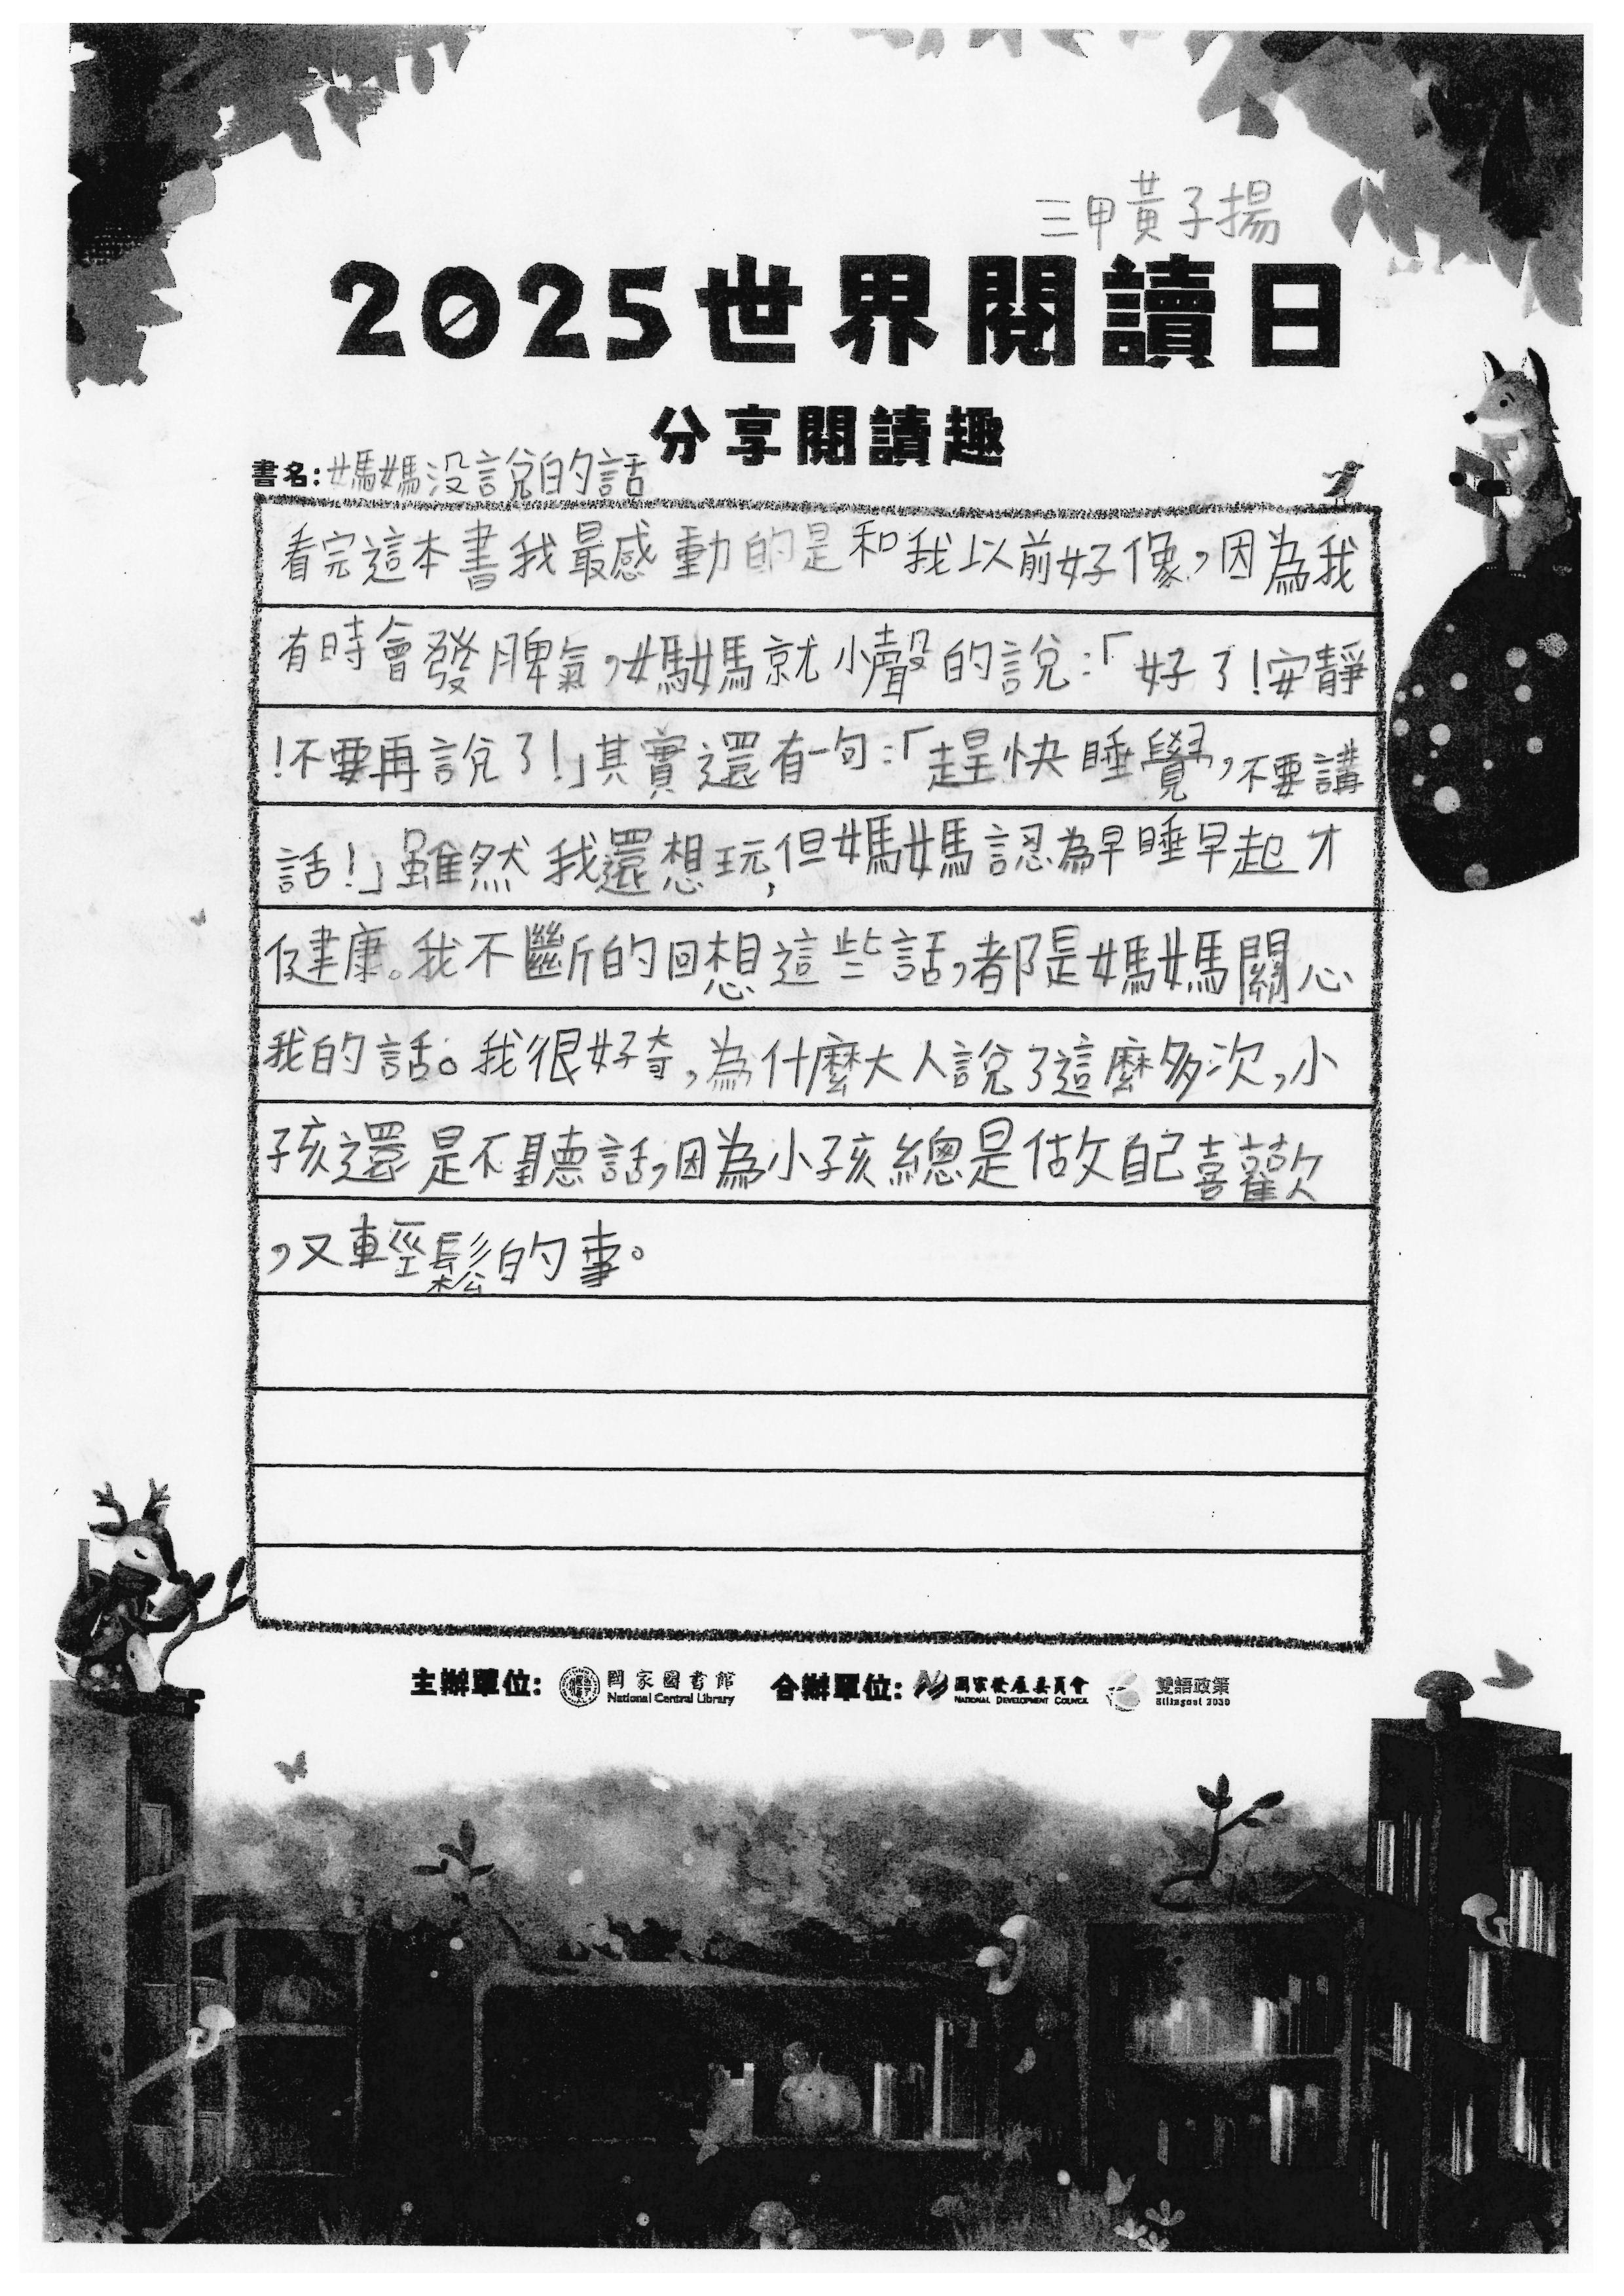 三甲黃子揚
2025世界閱讀日
分享閱讀趣
書名:媽媽沒說的話
看完這本書我最感動的是和我以前好像,因為我
有時會發脾氣,媽媽就小聲的說:「好了!安靜
!不要再說了!」其實還有一句:「趕快睡覺,不要講
話!」雖然我還想玩,但媽媽認為早睡早起才
健康。我不斷的回想這些話,都是媽媽關心
我的話。我很好奇,為什麼大人說了這麼多次,小
孩還是不聽話,因為小孩總是做自己喜歡
,又輕鬆的事。
主辦單位: 國家圖書館 National Central Library 合辦單位: 國家發展委員會 NATIONAL DEVELOPMENT COUNCIL 雙語政策 Bilingual 2030